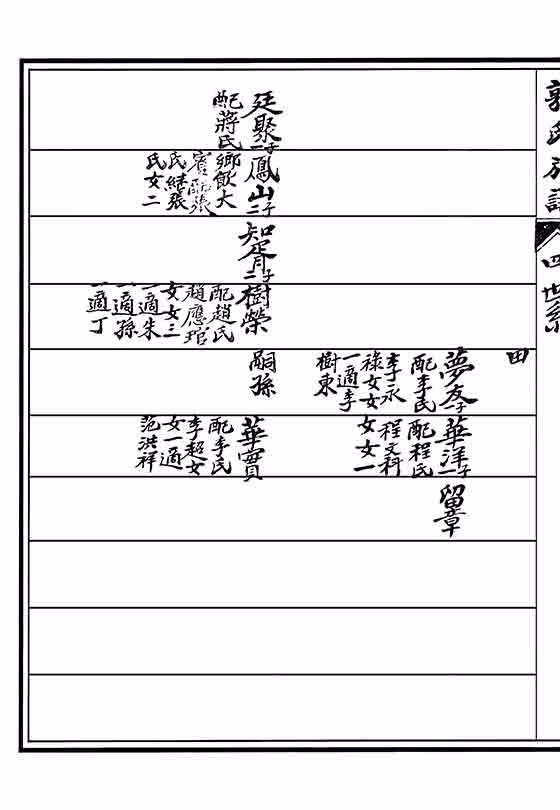 郭氏族譜
四世系
田
夢友子一
配李氏
李永
祿女女
一適李
樹東
華洋子一
配程氏
程文科
女女一
留章
廷聚子一
配蔣氏
鳳山子二
鄉飲大
賓配張
氏繼張
氏女二
知胥子二
樹榮
配趙氏
趙應琯
女女三
一適朱
一適孫
一適丁
嗣孫
華實
配李氏
李超女
女一適
范洪祥